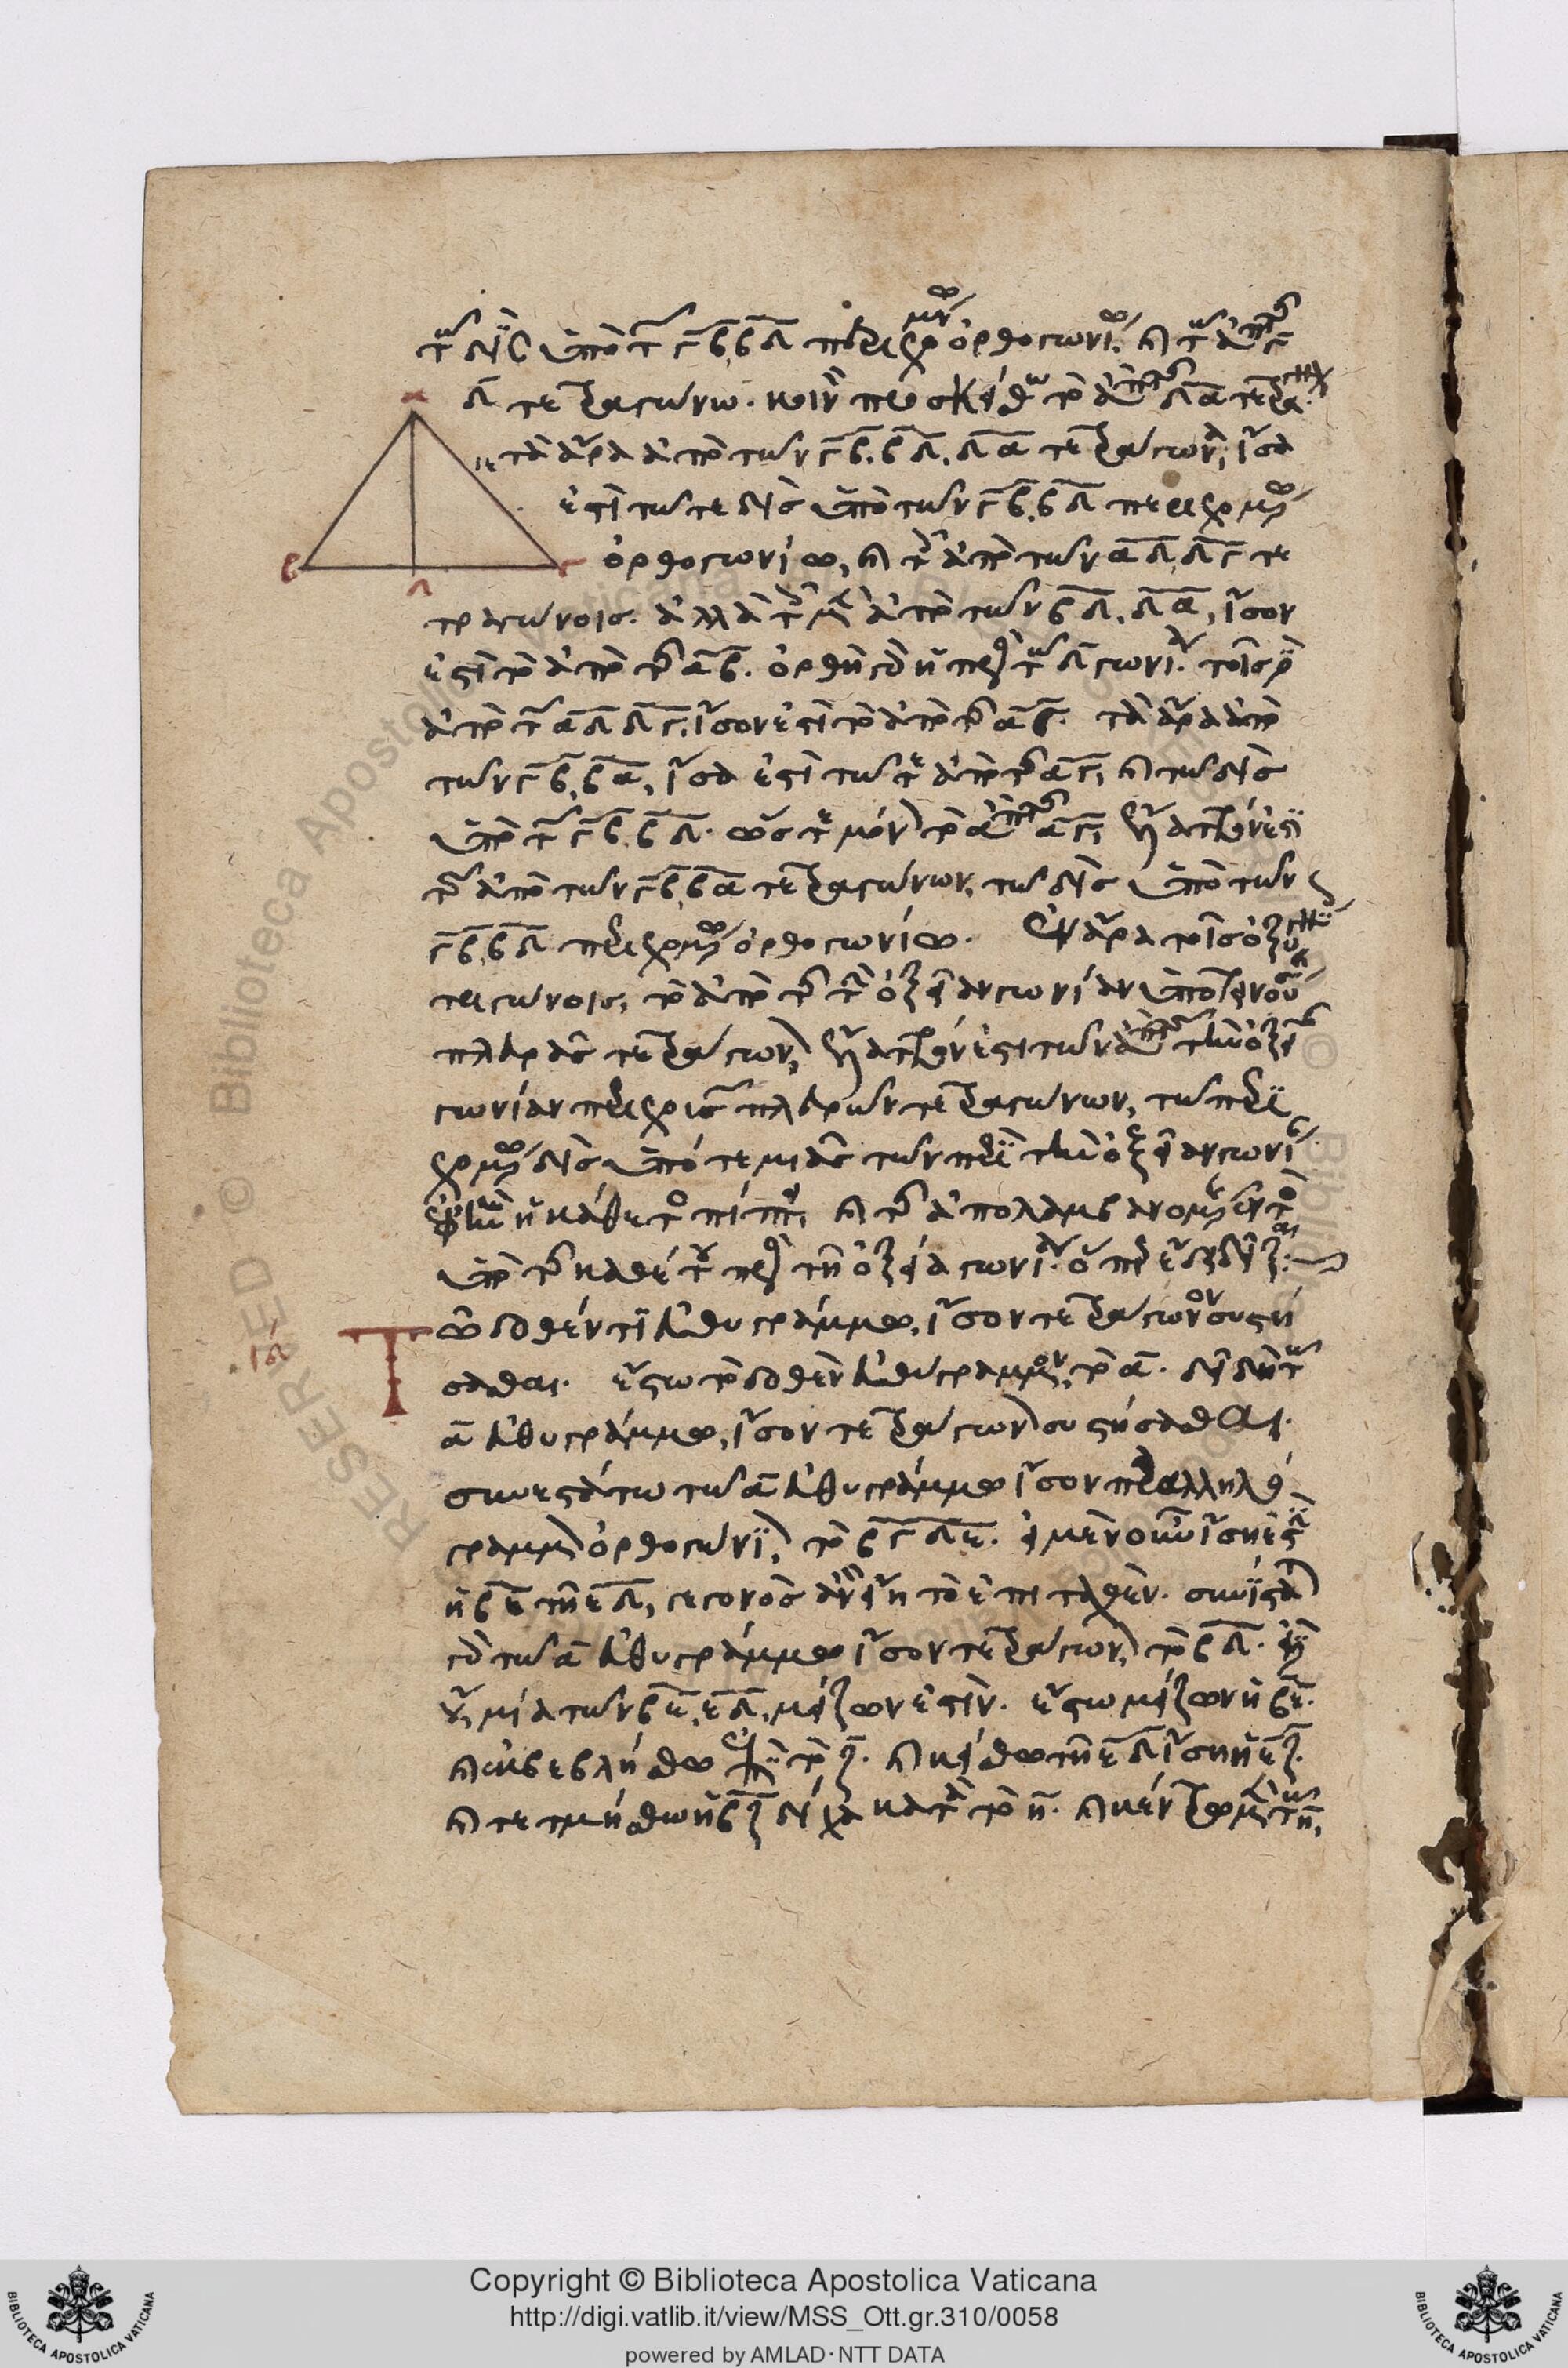 τῷ δὶς ὑπὸ τῶν γβ, βδ περιεχομένῳ ὀρθογωνίῳ, καὶ τῷ ἀπὸ τῆς γ
δ τετραγώνῳ. κοινὸν προσκείσθω τὸ ἀπὸ τῆς δα τετράγωνον.
α
τὰ ἄρα ἀπὸ τῶν γβ, βδ, δα τετράγωνα, ἴσα
ἐστὶ τῷ τε δὶς ὑπὸ τῶν γβ, βδ περιεχομένῳ
β γ
ὀρθογωνίῳ, καὶ τοῖς ἀπὸ τῶν αδ, δγ τε
δ
τραγώνοις. ἀλλὰ τοῖς μὲν ἀπὸ τῶν βδ, δα, ἴσον
ἐστὶ τὸ ἀπὸ τῆς αβ. ὀρθὴ γὰρ ἡ πρὸς τῷ δ γωνία. τοῖς δὲ
ἀπὸ τῶν αδ, δγ, ἴσον ἐστὶ τὸ ἀπὸ τῆς αγ. τὰ ἄρα ἀπὸ
τῶν γβ, βα, ἴσα ἐστὶ τῷ τε ἀπὸ τῆς αγ, καὶ τῷ δὶς
ὑπὸ τῶν γβ, βδ. ὥστε μόνον τὸ ἀπὸ τῆς αγ, ἔλαττόν ἐστι
τῶν ἀπὸ τῶν γβ, βα τετραγώνων, τῷ δὶς ὑπὸ τῶν
γβ, βδ περιεχομένῳ ὀρθογωνίῳ. Ἐν ἄρα τοῖς ὀξυγωνίοις
τριγώνοις, τὸ ἀπὸ τῆς τὴν ὀξεῖαν γωνίαν ὑποτεινούσης
πλευρᾶς τετράγωνον, ἔλαττόν ἐστι τῶν ἀπὸ τῶν τὴν ὀξεῖαν
γωνίαν περιεχουσῶν πλευρῶν τετραγώνων, τῷ περιε
χομένῳ δὶς ὑπό τε μιᾶς τῶν περὶ τὴν ὀξεῖαν γωνίαν
ἐφ' ἣν ἡ κάθετος πίπτει, καὶ τῆς ἀπολαμβανομένης ἐντὸς
ὑπὸ τῆς καθέτου πρὸς τῇ ὀξείᾳ γωνίᾳ. ὅπερ ἔδει δεῖξαι:
ιδ
Τῷ δοθέντι εὐθυγράμμῳ, ἴσον τετράγωνον συστή
σασθαι. ἔστω τὸ δοθὲν εὐθύγραμμον, τὸ α. δεῖ δὴ τῷ
α εὐθυγράμμῳ, ἴσον τετράγωνον συστήσασθαι.
συνεστάτω τῷ α εὐθυγράμμῳ ἴσον παραλληλό
γραμμον ὀρθογώνιον, τὸ βγδε. εἰ μὲν οὖν ἴση ἐστὶν
ἡ βε τῇ εδ, γεγονὸς ἂν εἴη τὸ ἐπιταχθέν. συνίσταται
γὰρ τῷ α εὐθυγράμμῳ ἴσον τετράγωνον, τὸ βδ. εἰ δὲ
οὔ, μία τῶν βε, εδ, μείζων ἐστίν. ἔστω μείζων ἡ βε.
καὶ ἐκβεβλήσθω ἐπὶ τὸ ζ. καὶ κείσθω τῇ εδ ἴση ἡ εζ.
καὶ τετμήσθω ἡ βζ δίχα κατὰ τὸ η. καὶ κέντρῳ μὲν τῷ η,
Copyright © Biblioteca Apostolica Vaticana
http://digi.vatlib.it/view/MSS_Ott.gr.310/0058
powered by AMLAD·NTT DATA